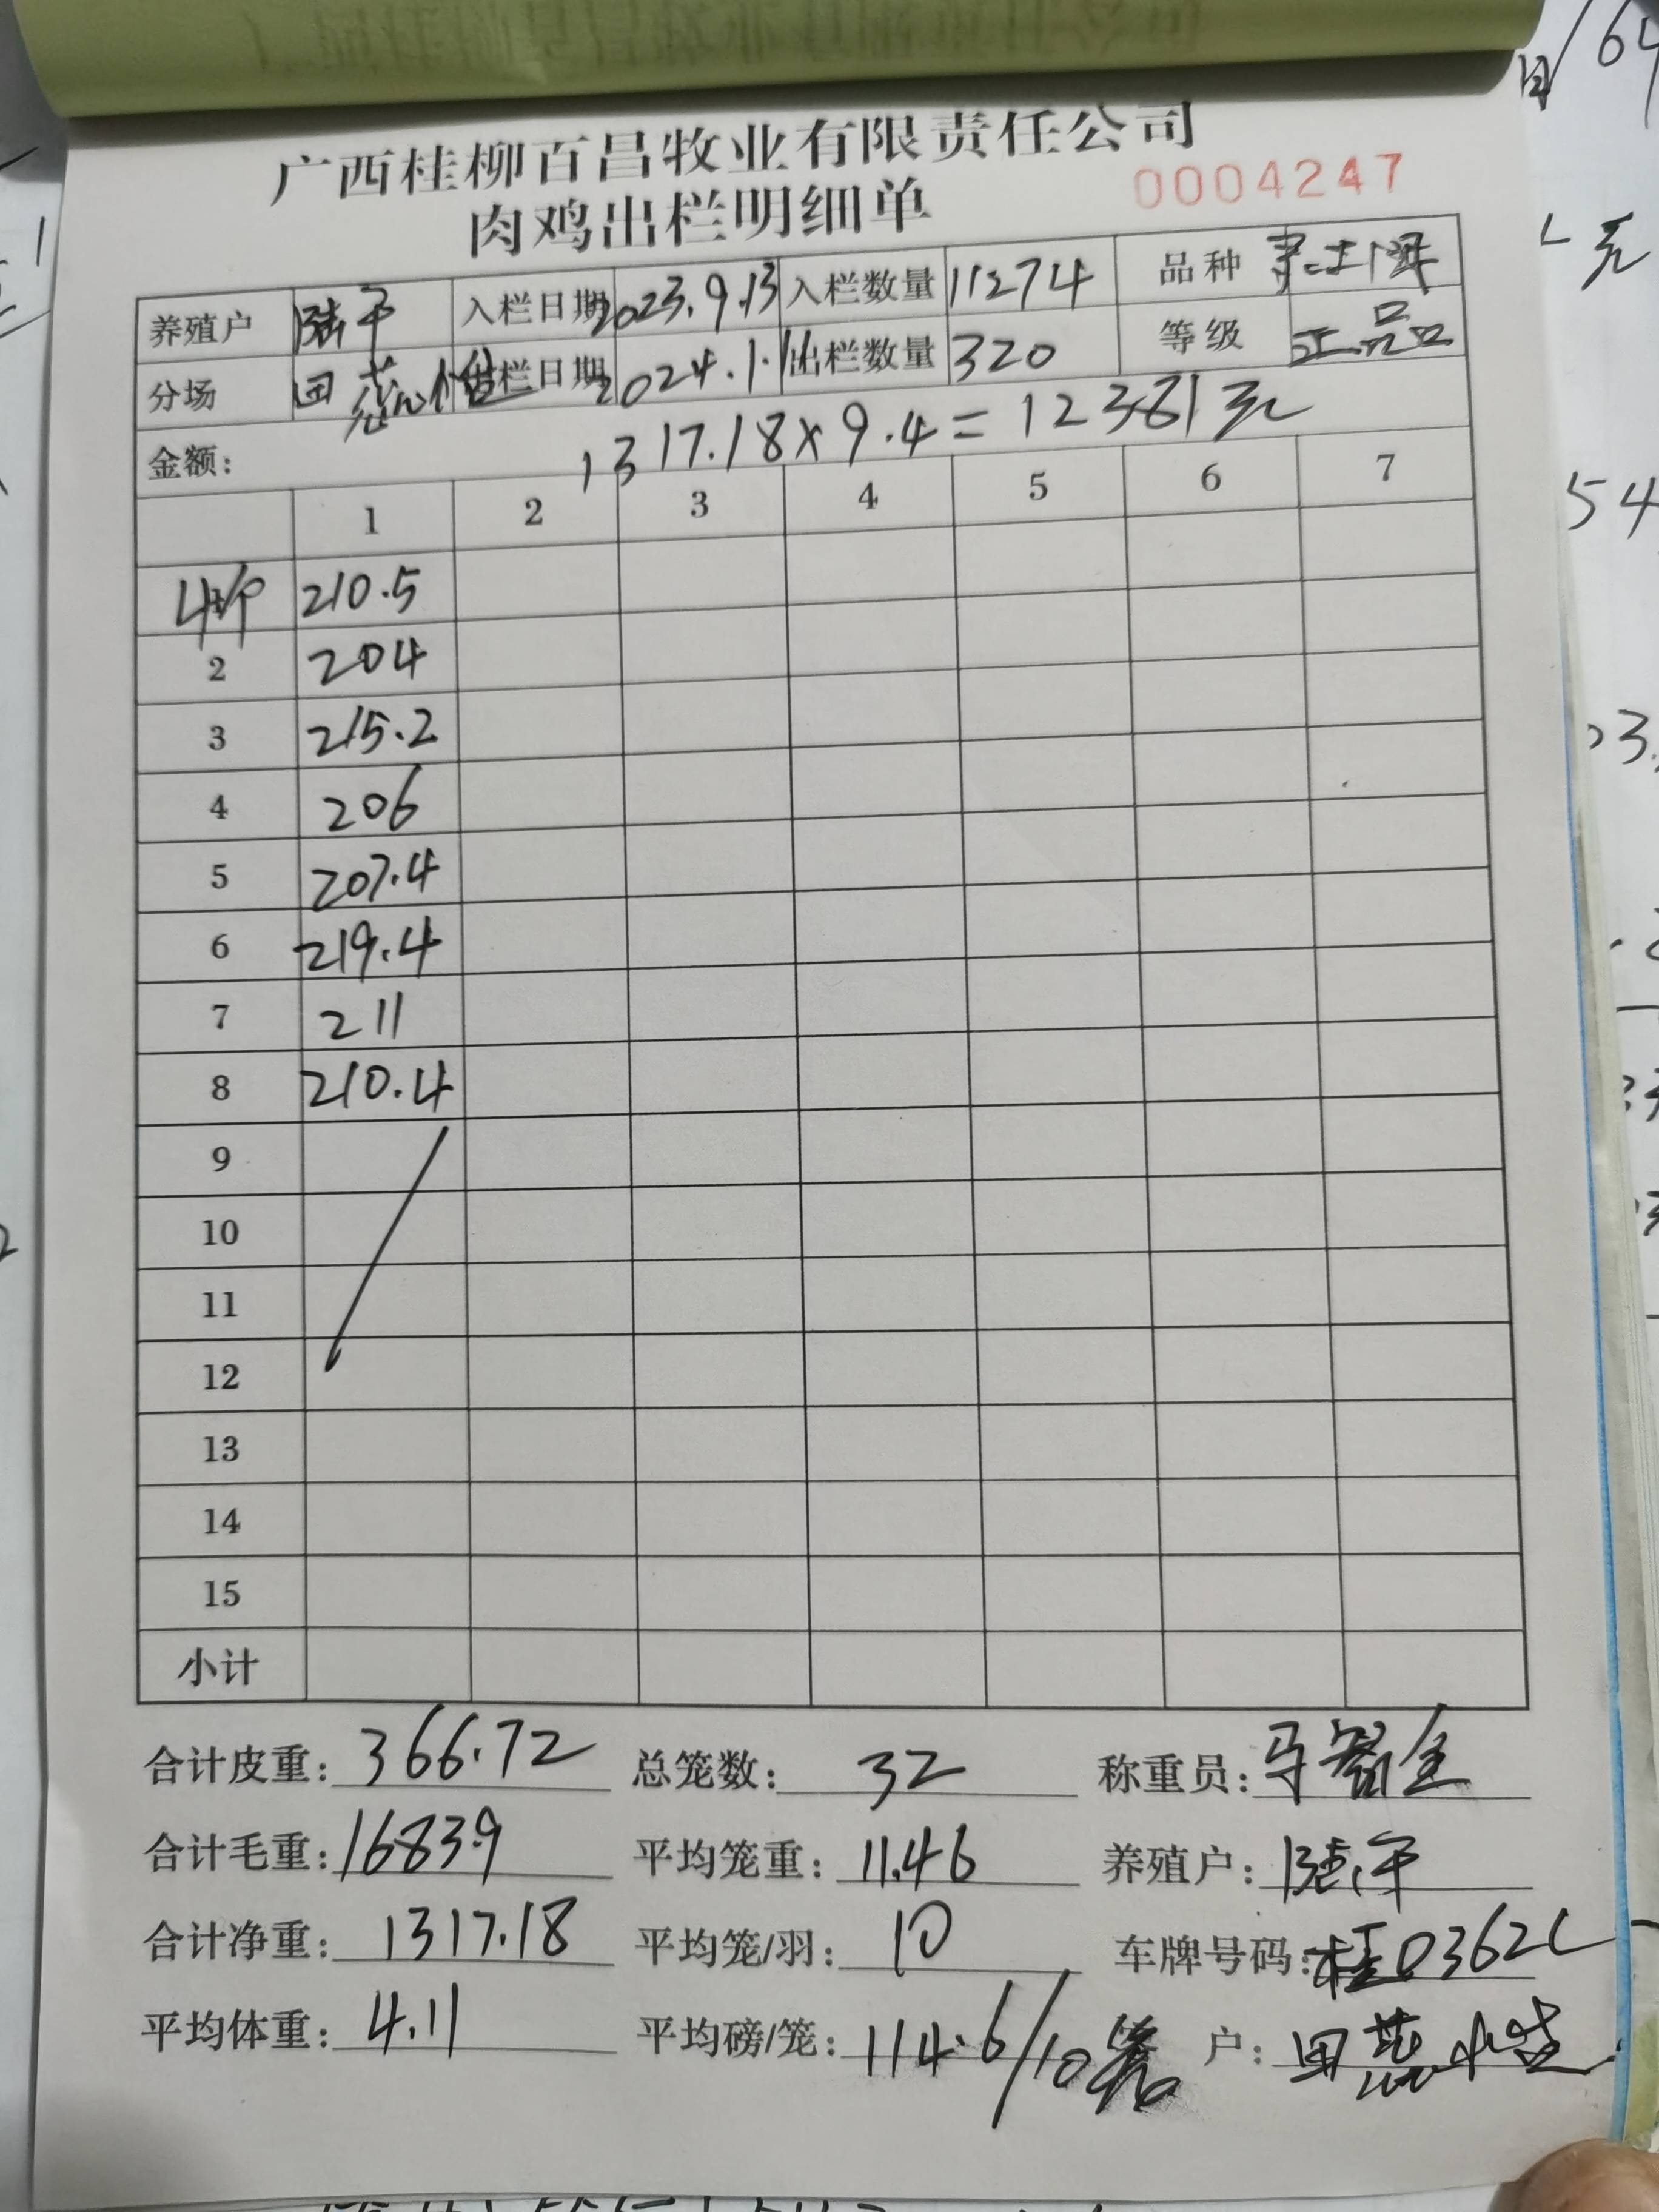 广西桂柳百昌牧业有限责任公司
肉鸡出栏明细单 0004247
养殖户 陆平 入栏日期 2023.9.13 入栏数量 11274 品种
分场 田 栏日期 2024.1.11 出栏数量 320 等级 正品
金额: 1317.18×9.4=12381元
1 2 3 4 5 6 7
210.5
2 204
3 215.2
4 206
5 207.4
6 219.4
7 211
8 210.4
9
10
11
12
13
14
15
小计
合计皮重: 366.72 总笼数: 32 称重员:
合计毛重: 1683.9 平均笼重: 11.46 养殖户: 陆平
合计净重: 1317.18 平均笼/羽: 10 车牌号码: 桂D362L
平均体重: 4.11 平均磅/笼: 114.6/10笼 户: 田